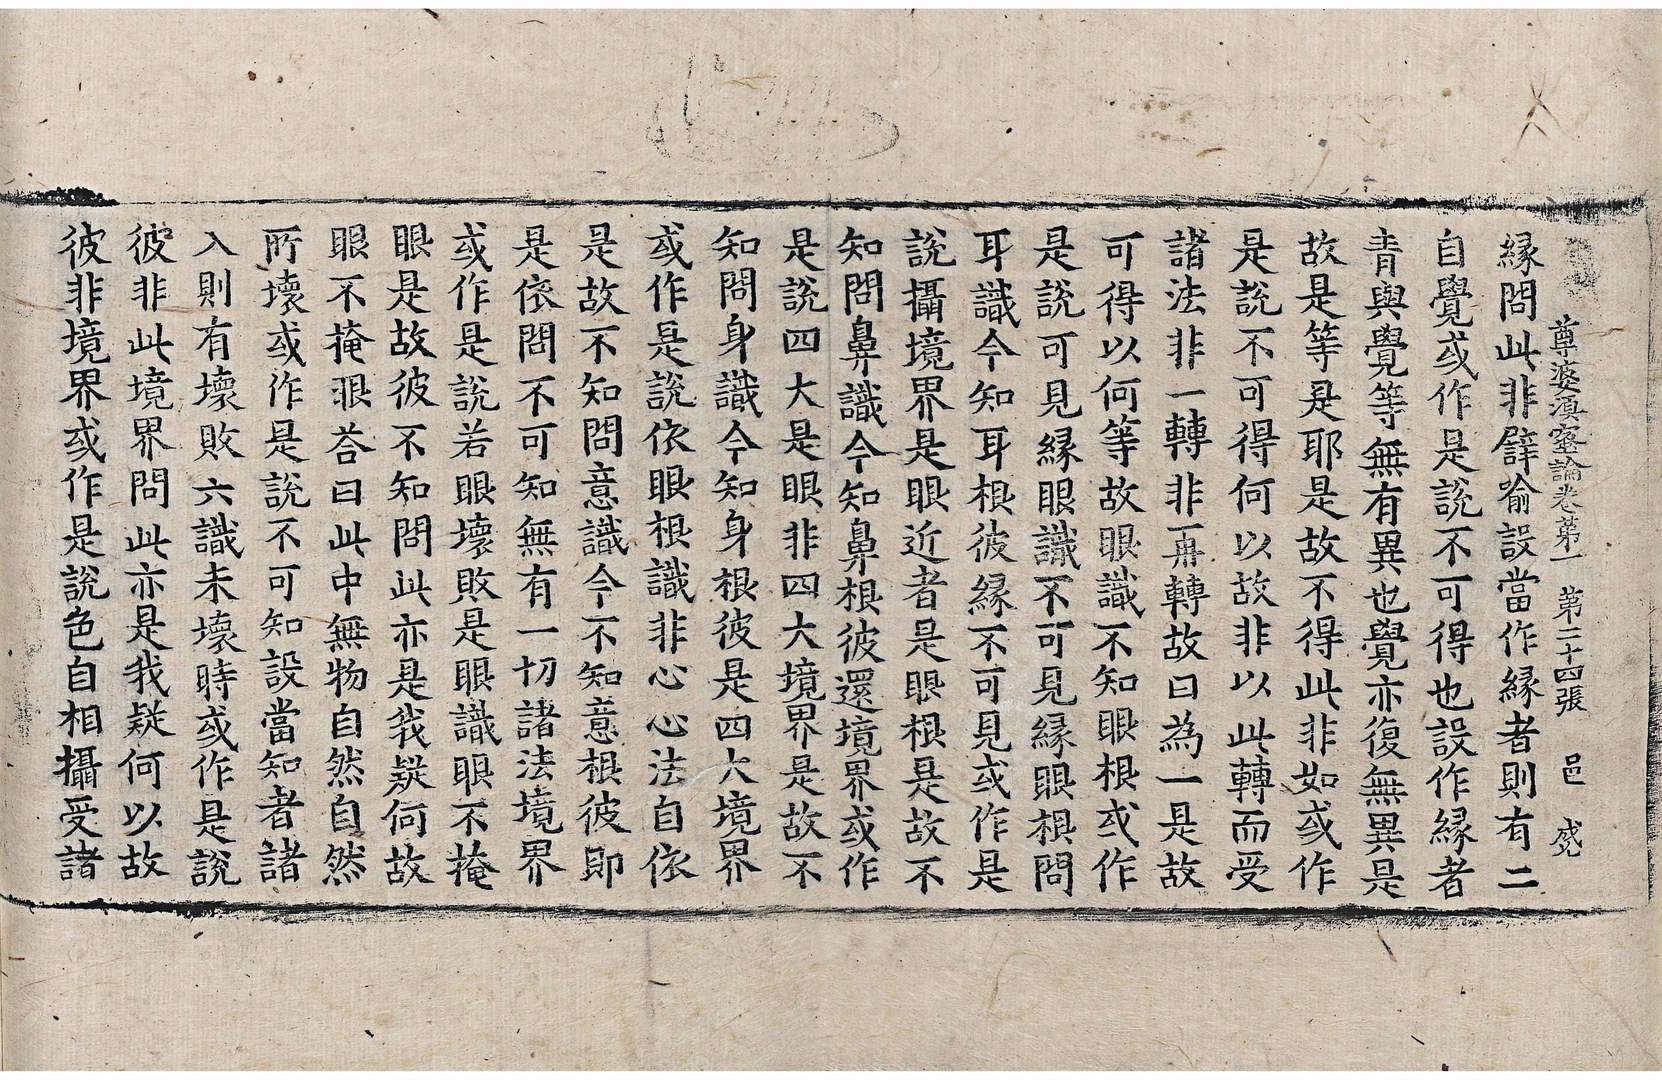 尊婆湏蜜論卷第一　第二十四張　邑
緣問此非譬喻設當作緣者則有二
自覺或作是說不可得也設作緣者
青與覺等無有異也覺亦復無異是
故是等是耶是故不得此非如或作
是說不可得何以故非以此轉而受
諸法非一轉非再轉故曰為一是故
可得以何等故眼識不知眼根或作
是說可見緣眼識不可見緣眼根問
耳識今知耳根彼緣不可見或作是
說攝境界是眼近者是眼根是故不
知問鼻識今知鼻根彼還境界或作
是說四大是眼非四大境界是故不
知問身識今知身根彼是四大境界
或作是說依眼根識非心心法自依
是故不知問意識今不知意根彼即
是依問不可知無有一切諸法境界
或作是說若眼壞敗是眼識眼不掩
眼是故彼不知問此亦是我疑何故
眼不掩眼荅曰此中無物自然自然
所壞或作是說不可知設當知者諸
入則有壞敗六識未壞時或作是說
彼非此境界問此亦是我疑何以故
彼非境界或作是說色自相攝受諸